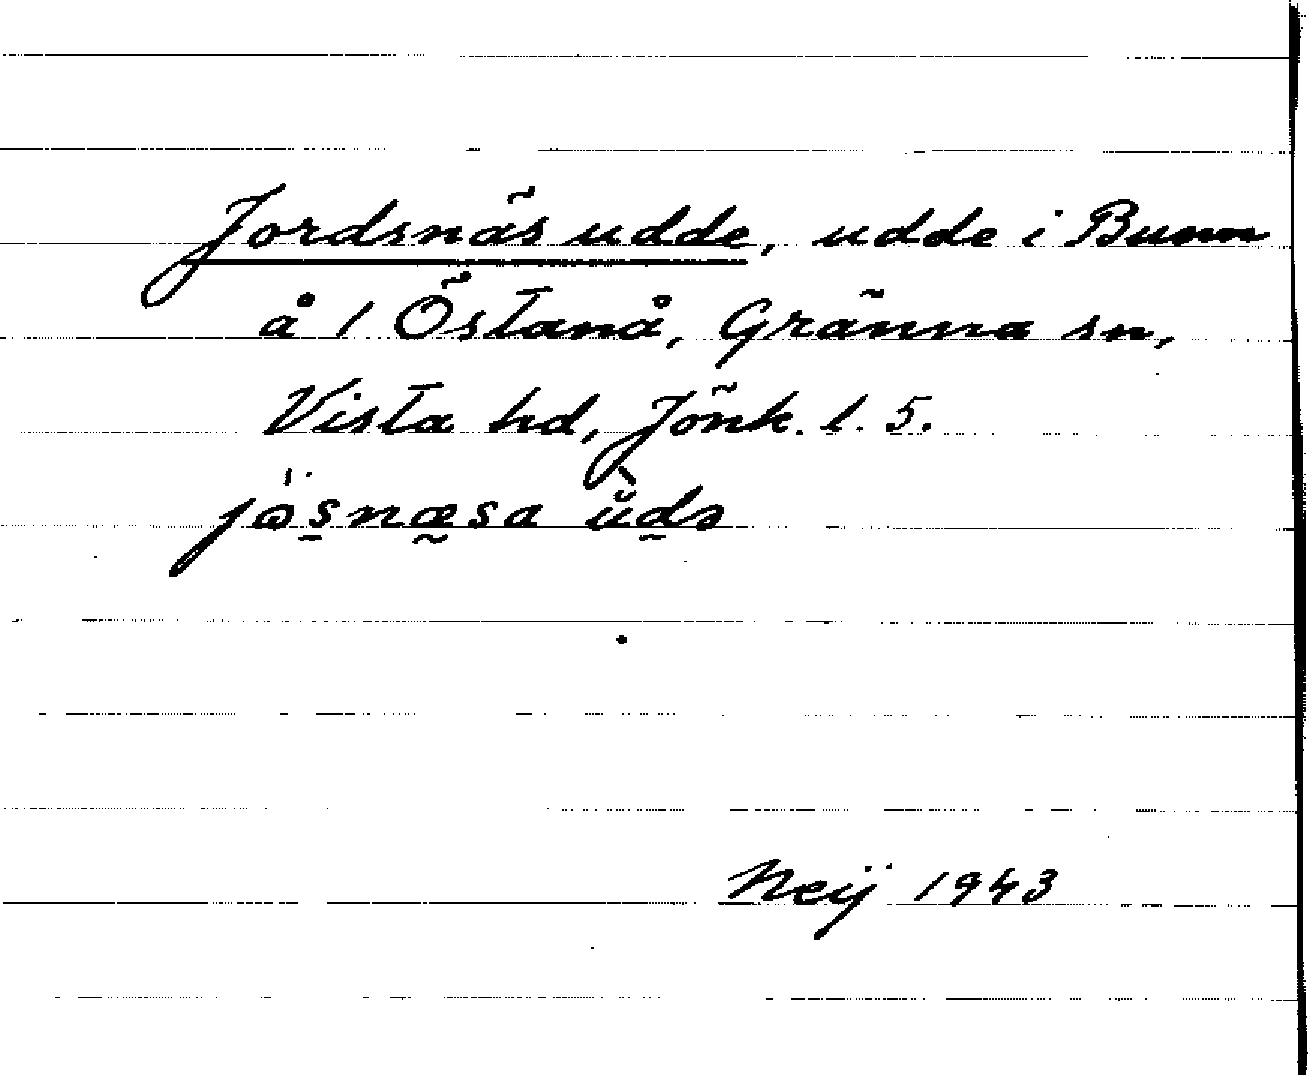 Jordsnäs udde, udde i Bunn
å 1 Östanå, Gränna sn,
Vista hd, Jönk. l. 5.
Neij 1943